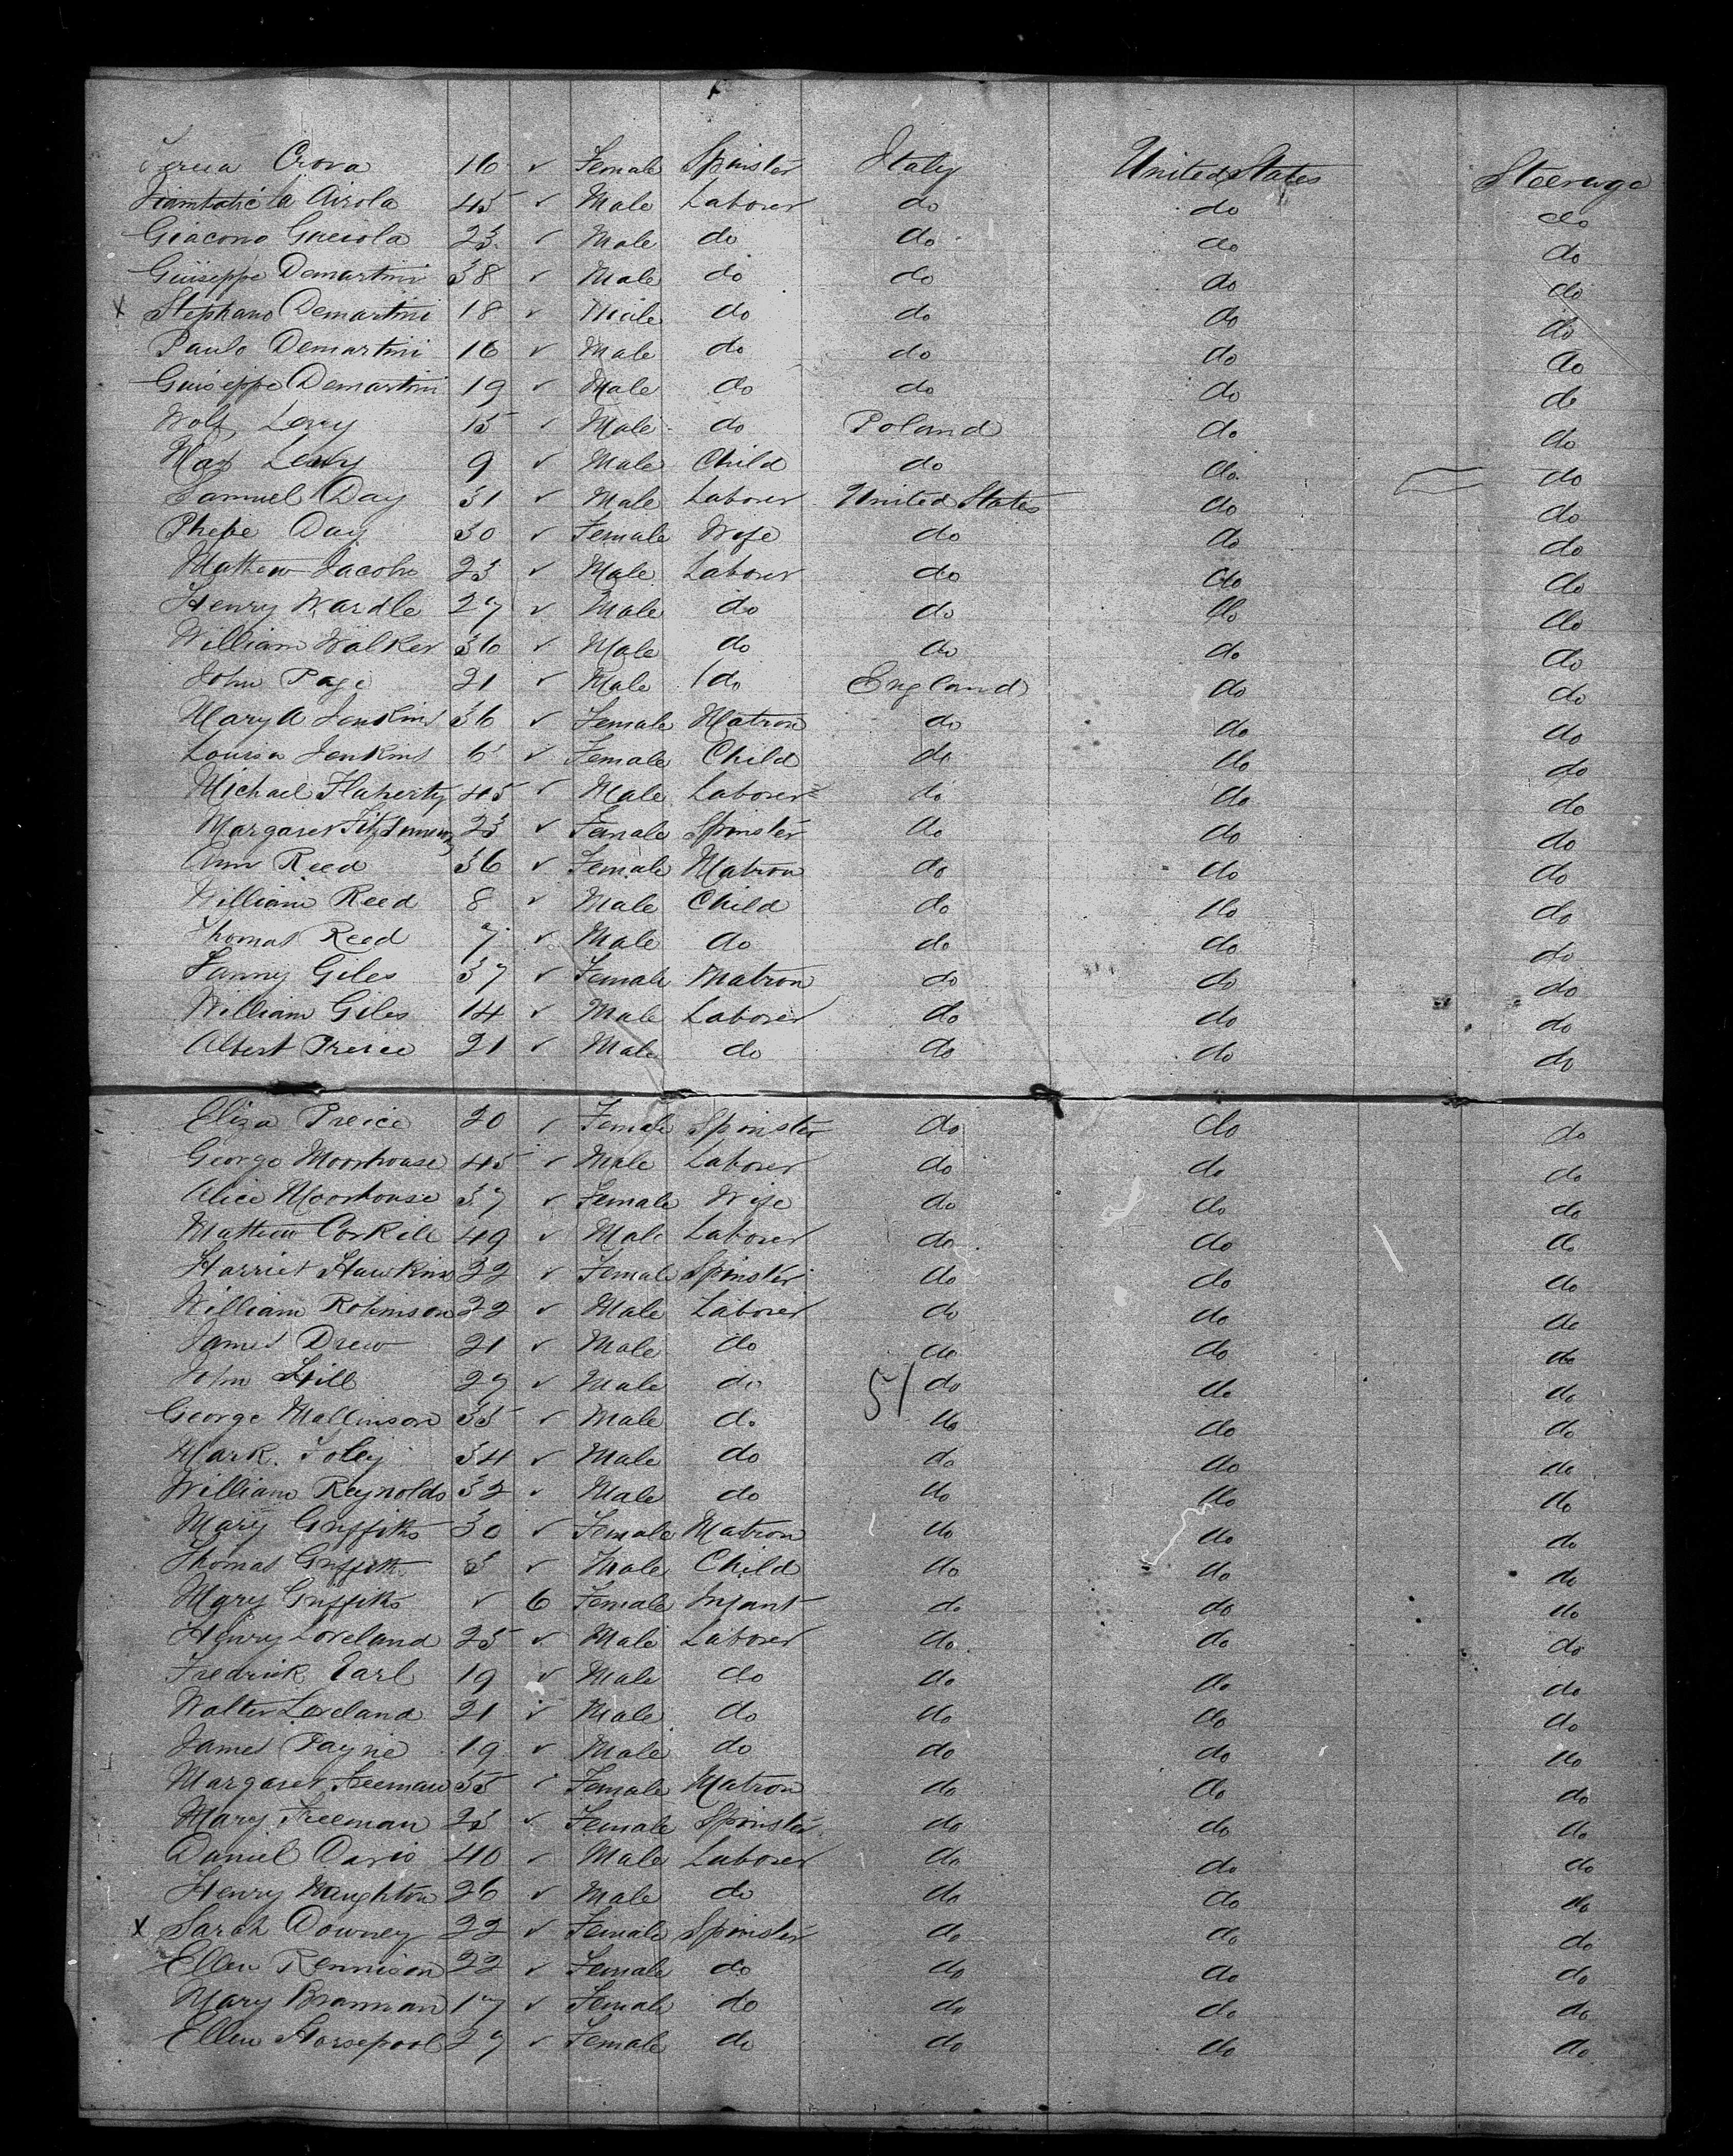 Crova 16 ✓ Female Spinster Italy United States Steerage
Airola 45 ✓ Male Laborer do do do
Giacono Graciola 23 ✓ Male do do do do
Guiseppe Demartini 38 ✓ Male do do do do
x Stephano Demartini 18 ✓ Male do do do do
Paulo Demartini 16 ✓ Male do do do do
Guiseppe Demartini 19 ✓ Male do do do do
Wolf Levy 15 ✓ Male do Poland do do
Max Levy 9 ✓ Male Child do do do
Samuel Day 31 ✓ Male Laborer United States do do
Phebe Day 30 ✓ Female Wife do do do
Mathew Jacobs 23 ✓ Male Laborer do do do
Henry Wardle 27 ✓ Male do do do do
William Walker 36 ✓ Male do do do do
John Page 21 ✓ Male do England do do
Mary A Jenkins 36 ✓ Female Matron do do do
Louisa Jenkins 6 ✓ Female Child do do do
Michael Flaherty 45 ✓ Male Laborer do do do
Margaret 23 ✓ Female Spinster do do do
Ann Reed 36 ✓ Female Matron do do do
William Reed 8 ✓ Male Child do do do
Thomas Reed 7 ✓ Male do do do do
Fanny Giles 37 ✓ Female Matron do do do
William Giles 14 ✓ Male Laborer do do do
Albert Preice 21 ✓ Male do do do do
Eliza Preice 20 ✓ Female Spinster do do do
George Moorhouse 45 ✓ Male Laborer do do do
Alice Moorhouse 37 ✓ Female Wife do do do
Mathew Corkill 49 ✓ Male Laborer do do do
Harriet Hawkins 22 ✓ Female Spinster do do do
William Robinson 22 ✓ Male Laborer do do do
James Drew 21 ✓ Male do do do do
John Hill 27 ✓ Male do 51 do do do
George Mallinson 35 ✓ Male do do do do
Mark Foley 34 ✓ Male do do do do
William Reynolds 32 ✓ Male do do do do
Mary Griffiths 30 ✓ Female Matron do do do
Thomas Griffith 3 ✓ Male Child do do do
Mary Griffiths ✓ 6 Female Infant do do do
Henry Loveland 25 ✓ Male Laborer do do do
Fredrick Earl 19 ✓ Male do do do do
Walter Loveland 21 ✓ Male do do do do
James Payne 19 ✓ Male do do do do
Margaret Freeman 55 ✓ Female Matron do do do
Mary Freeman 23 ✓ Female Spinster do do do
Daniel Davis 40 ✓ Male Laborer do do do
Henry Naughton 26 ✓ Male do do do do
x Sarah Downey 22 ✓ Female Spinster do do do
Ellen Rennison 22 ✓ Female do do do do
Mary Brannan 17 ✓ Female do do do do
Ellen Horsepool 27 ✓ Female do do do do